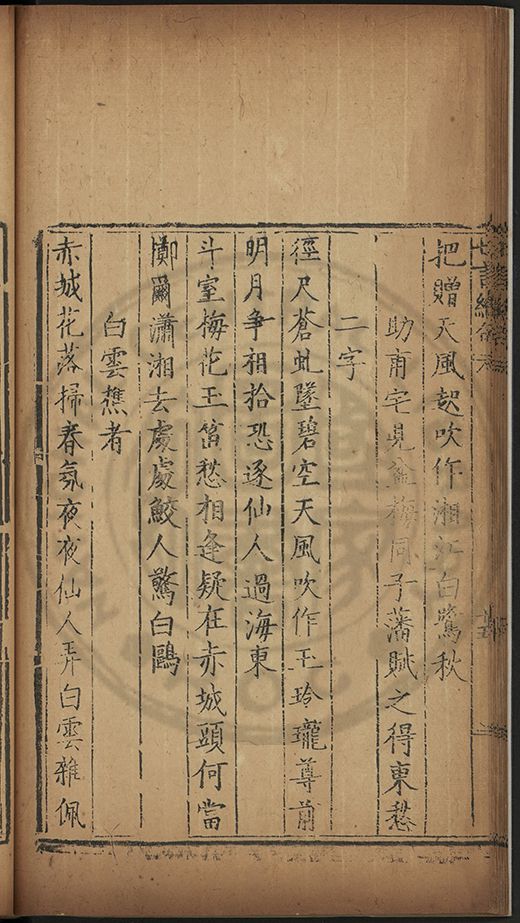 把贈天風起吹作湘江白鷺秋
助甫宅見盆梅同子藩賦之得東愁
二字
徑尺蒼虬墜碧空天風吹作玉玲瓏尊前
明月爭相拾恐逐仙人過海東
斗室梅花玉笛愁相逢疑在赤城頭何當
擲爾瀟湘去處處鮫人驚白鷗
白雲樵者
赤城花落掃春氛夜夜仙人弄白雲雜佩